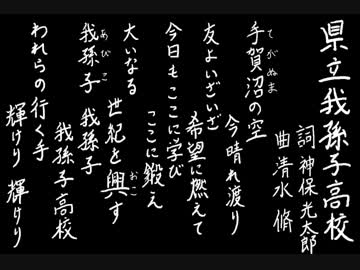 県立我孫子高校
詞 神保光太郎
曲 清水脩
手賀沼の空
てがぬま
今晴れ渡り
友よいざいざ
希望に燃えて
今日もここに学び
ここに鍛え
大いなる
世紀を興す
おこ
我孫子
あびこ
我孫子
我孫子高校
われらの行く手
輝けり 輝けり